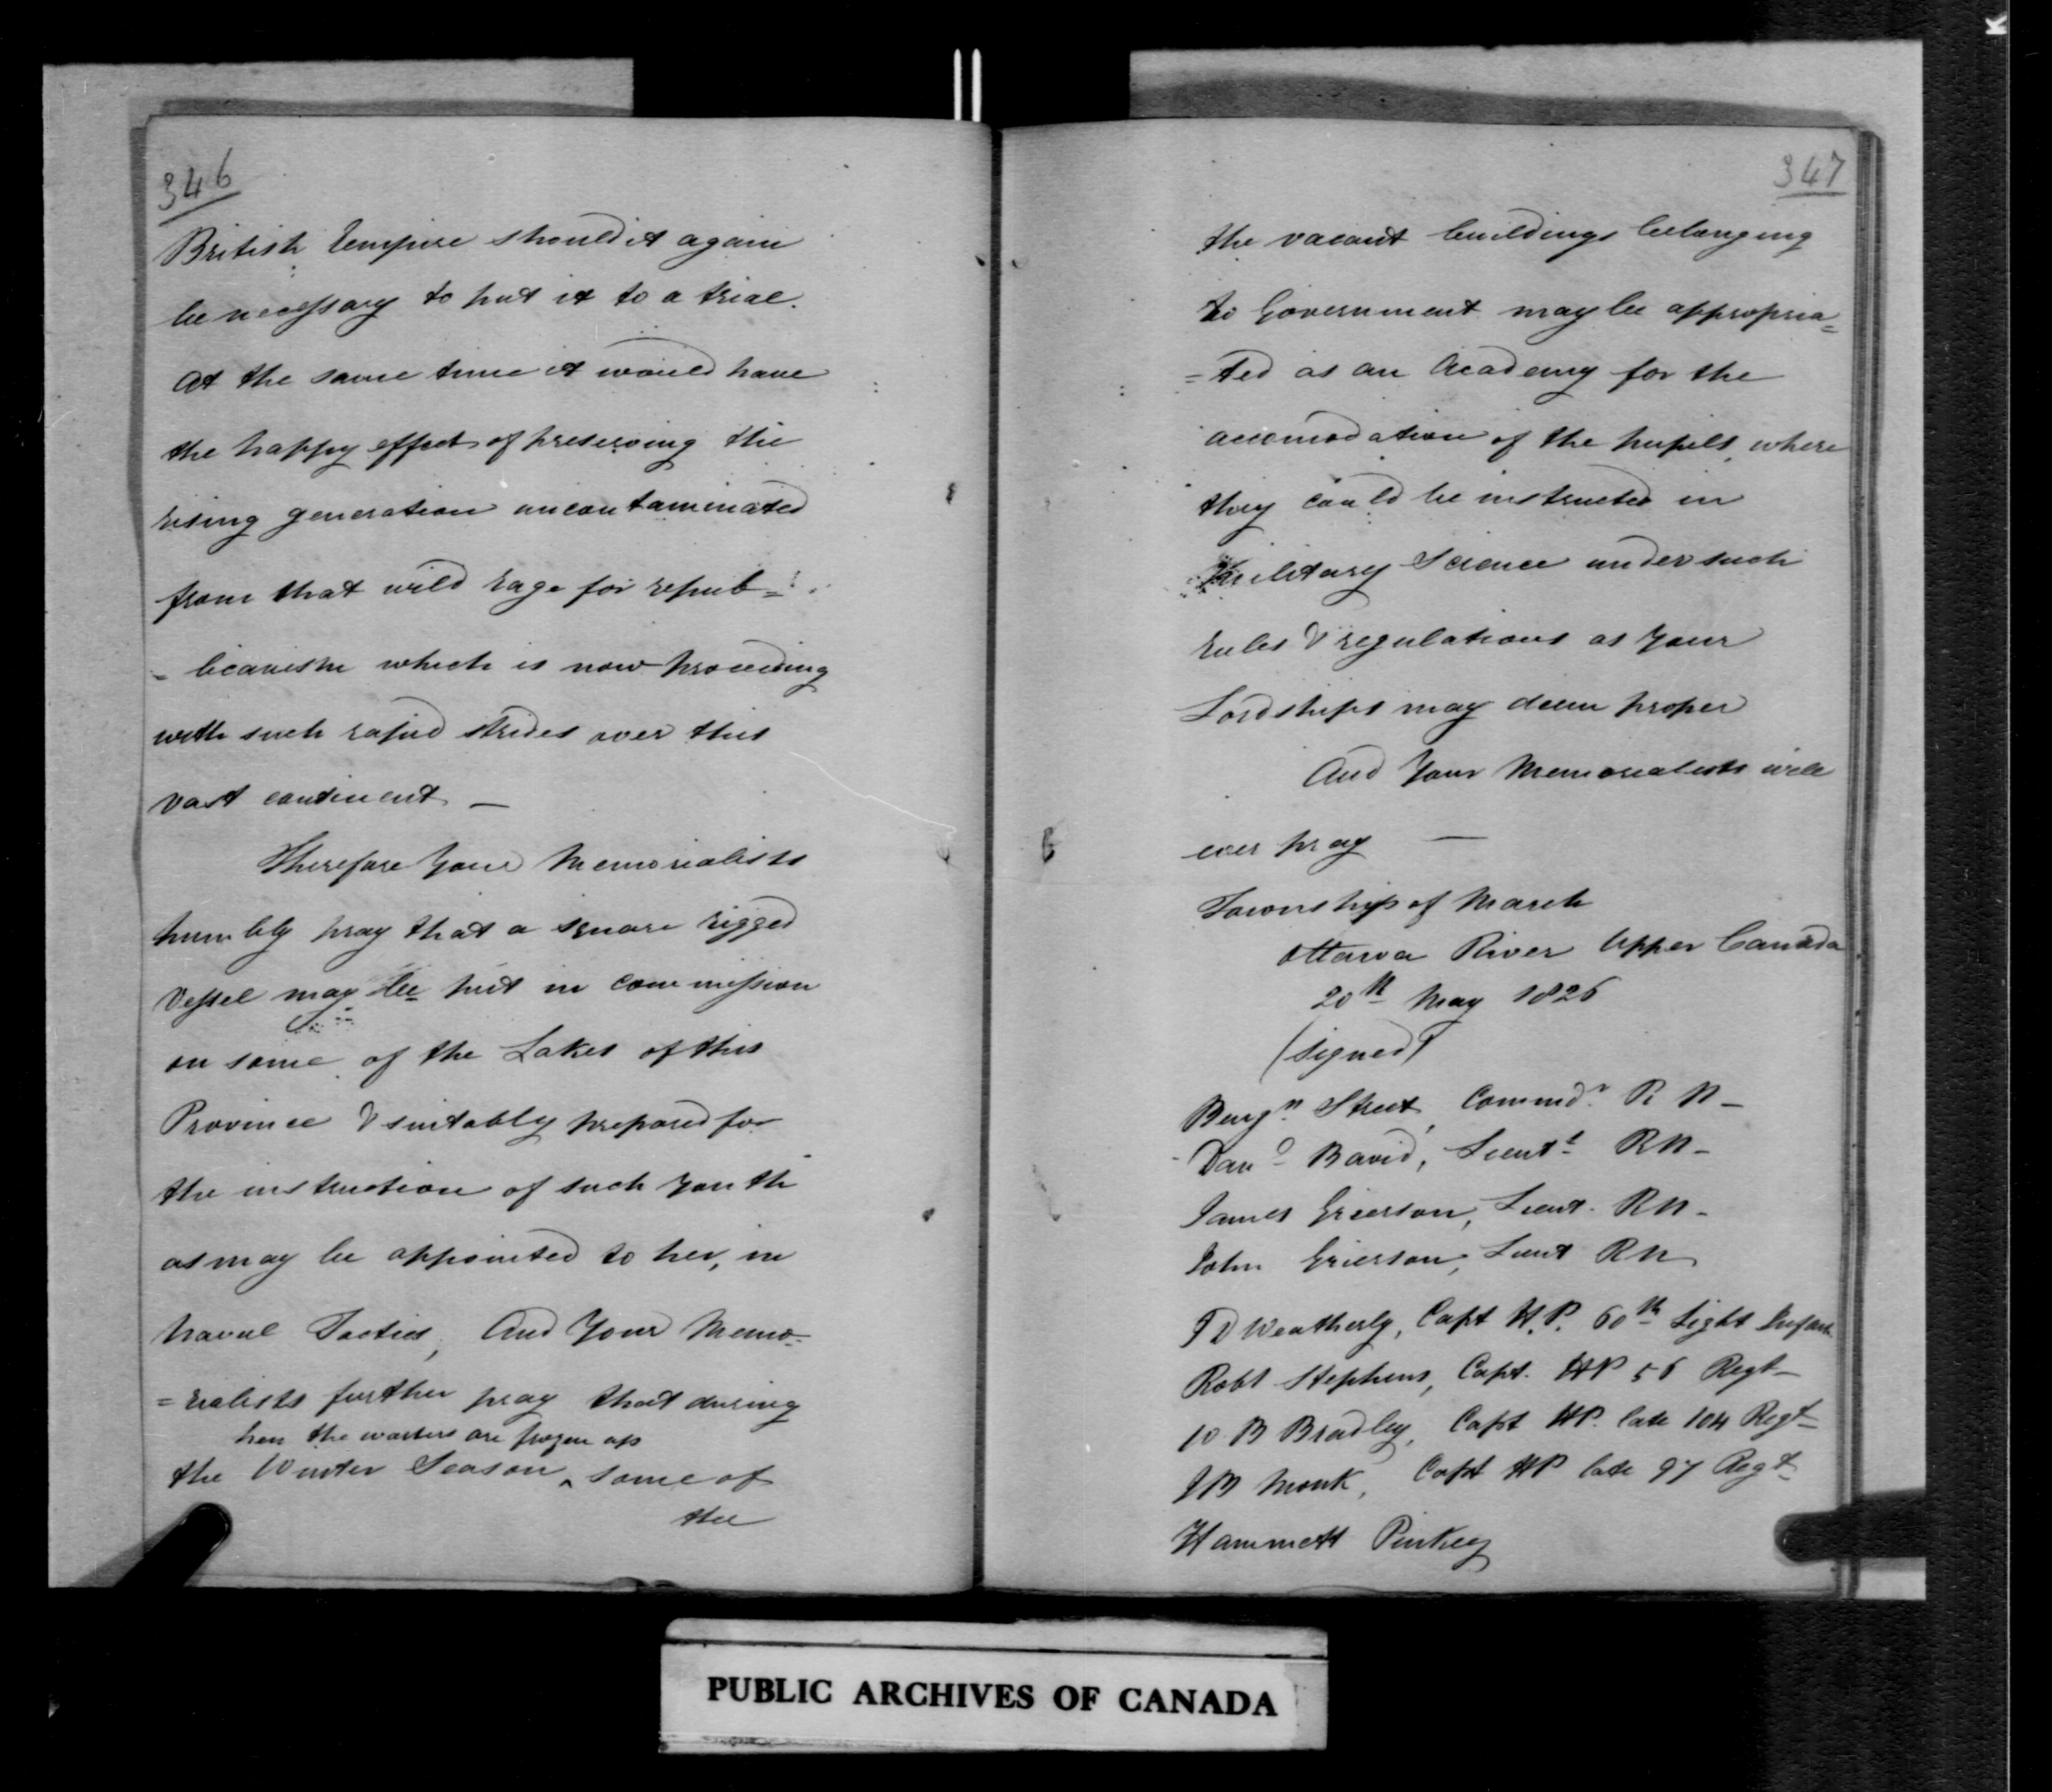 346
British Empire should it again
be necessary to put it to a trial.
At the same time it would have
the happy effect of preserving the
rising generation uncontaminated
from that wild rage for repub=
= licanism which is now proceeding
with such rapid strides over this
vast continent —
Therefore Your Memorialists
humbly pray that a square rigged
Vessel may be put in commission
on some of the Lakes of this
Province & suitably prepared for
the instruction of such youth
as may be appointed to her, in
Naval Tactics, And Your Memo=
=rialists further pray that during
hen the waters are frozen up
the Winter Season ^ some of
the
347
the vacant buildings belonging
to Government may be appropria=
=ted as an Academy for the
accomodation of the pupils, where
they could be instructed in
Military Science under such
rules & regulations as Your
Lordships may deem proper
And Your Memorialists will
ever pray —
Township of March
Ottawa River Upper Canada
20th May 1826
(Signed)
Benjn Street, Commdr R N —
Danl Baird, Lieutt RN —
James Grierson, Lieut. RN —
John Grierson, Lieut RN
T D Weatherly, Capt H.P. 60th Light Infant.
Robt Stephens, Capt. HP 56 Regt —
W B Bradley, Capt HP. late 104 Regt —
J B Monk, Capt HP late 97 Regt —
Hammett Pinkey
PUBLIC ARCHIVES OF CANADA
K